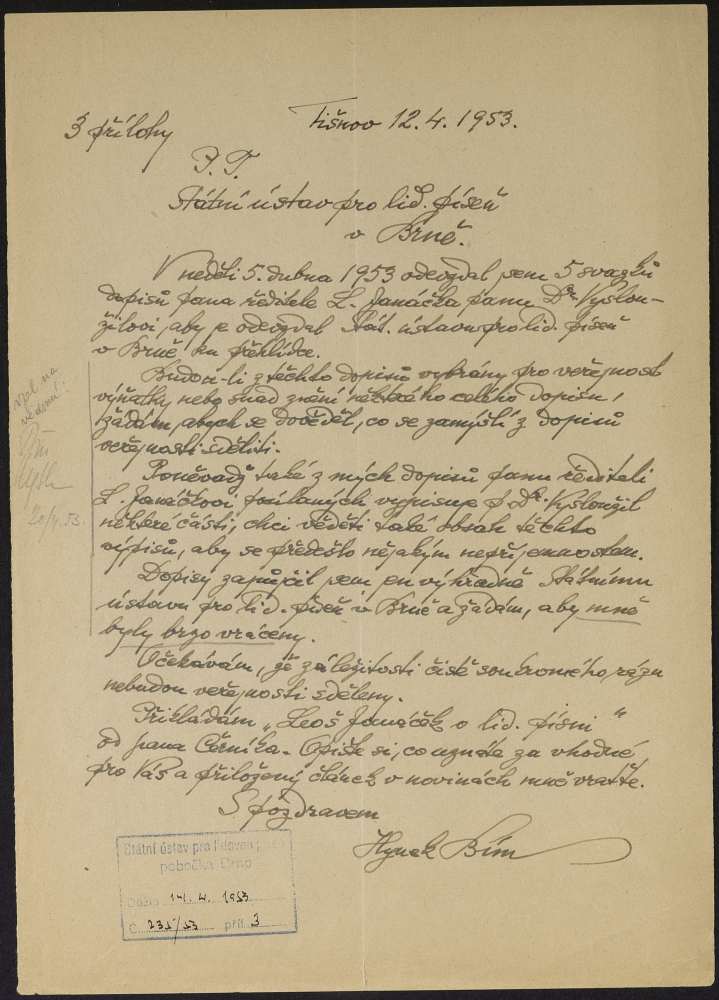 Tišnov 12.4.1953.
3 přílohy
P. T.
Státní ústav pro lid. píseň
v Brně.
V neděli 5. dubna 1953 odevzdal jsem 5 svazků
dopisů pana ředitele L. Janáčka panu Dr. Vyslou-
žilovi, aby je odevzdal Stát. ústavu pro lid. píseň
v Brně ku přehlídce.
Budou-li z těchto dopisů vybrány pro veřejnost
výňatky nebo snad znění některého celého dopisu,
žádám, abych se dověděl, co se zamýšlí z dopisů
veřejnosti sděliti.
Poněvadž také z mých dopisů panu řediteli
L. Janáčkovi posílaných vypisuje p. Dr. Vysloužil
některé části, chci věděti také obsah těchto
výpisů, aby se předešlo nějakým nepříjemnostem.
Dopisy zapůjčil jsem jen výhradně Státnímu
ústavu pro lid. píseň v Brně a žádám, aby mně
byly brzo vráceny.
Očekávám, že záležitosti čistě soukromého rázu
nebudou veřejnosti sděleny.
Přikládám „Leoš Janáček o lid. písni"
od pana Černíka. Opište si, co uznáte za vhodné
pro Vás a přiložený článek v novinách mně vraťte.
S pozdravem
Hynek Bím
vzal na
vědomí:
20/4.53.
Státní ústav pro lidovou píseň
pobočka Brno
Došlo 14. 4. 1953
Č. 231/53 příl. 3